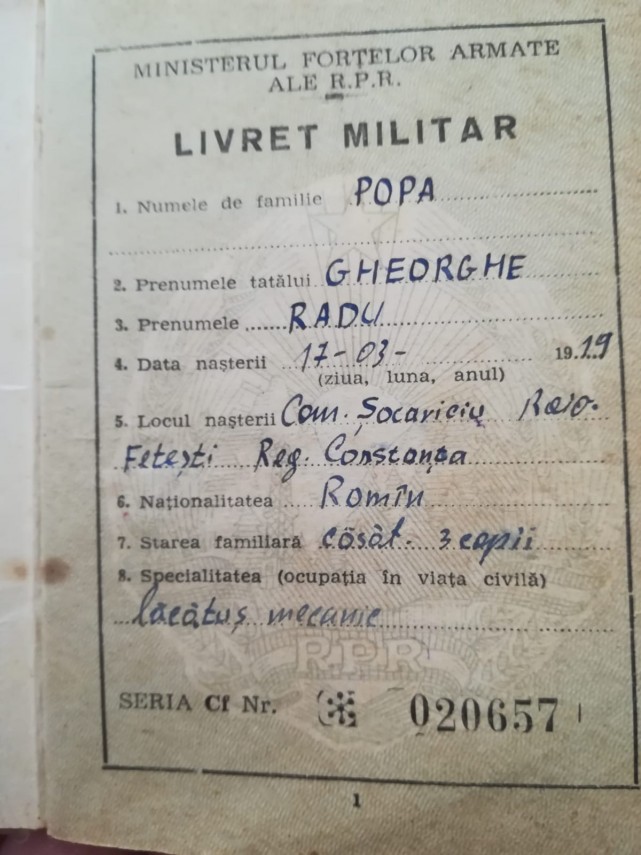 MINISTERUL FORȚELOR ARMATE
ALE R.P.R.
LIVRET MILITAR
1. Numele de familie POPA
2. Prenumele tatălui GHEORGHE
3. Prenumele RADU
4. Data nașterii 17-03- 1919
(ziua, luna, anul)
5. Locul nașterii Com. Șocariciu Raio.
Fetești Reg. Constanța
6. Naționalitatea Romîn
7. Starea familiară căsăt. 3 copii
8. Specialitatea (ocupația în viața civilă)
lăcătuș mecanic
RPR
SERIA Cf Nr. 020657
1